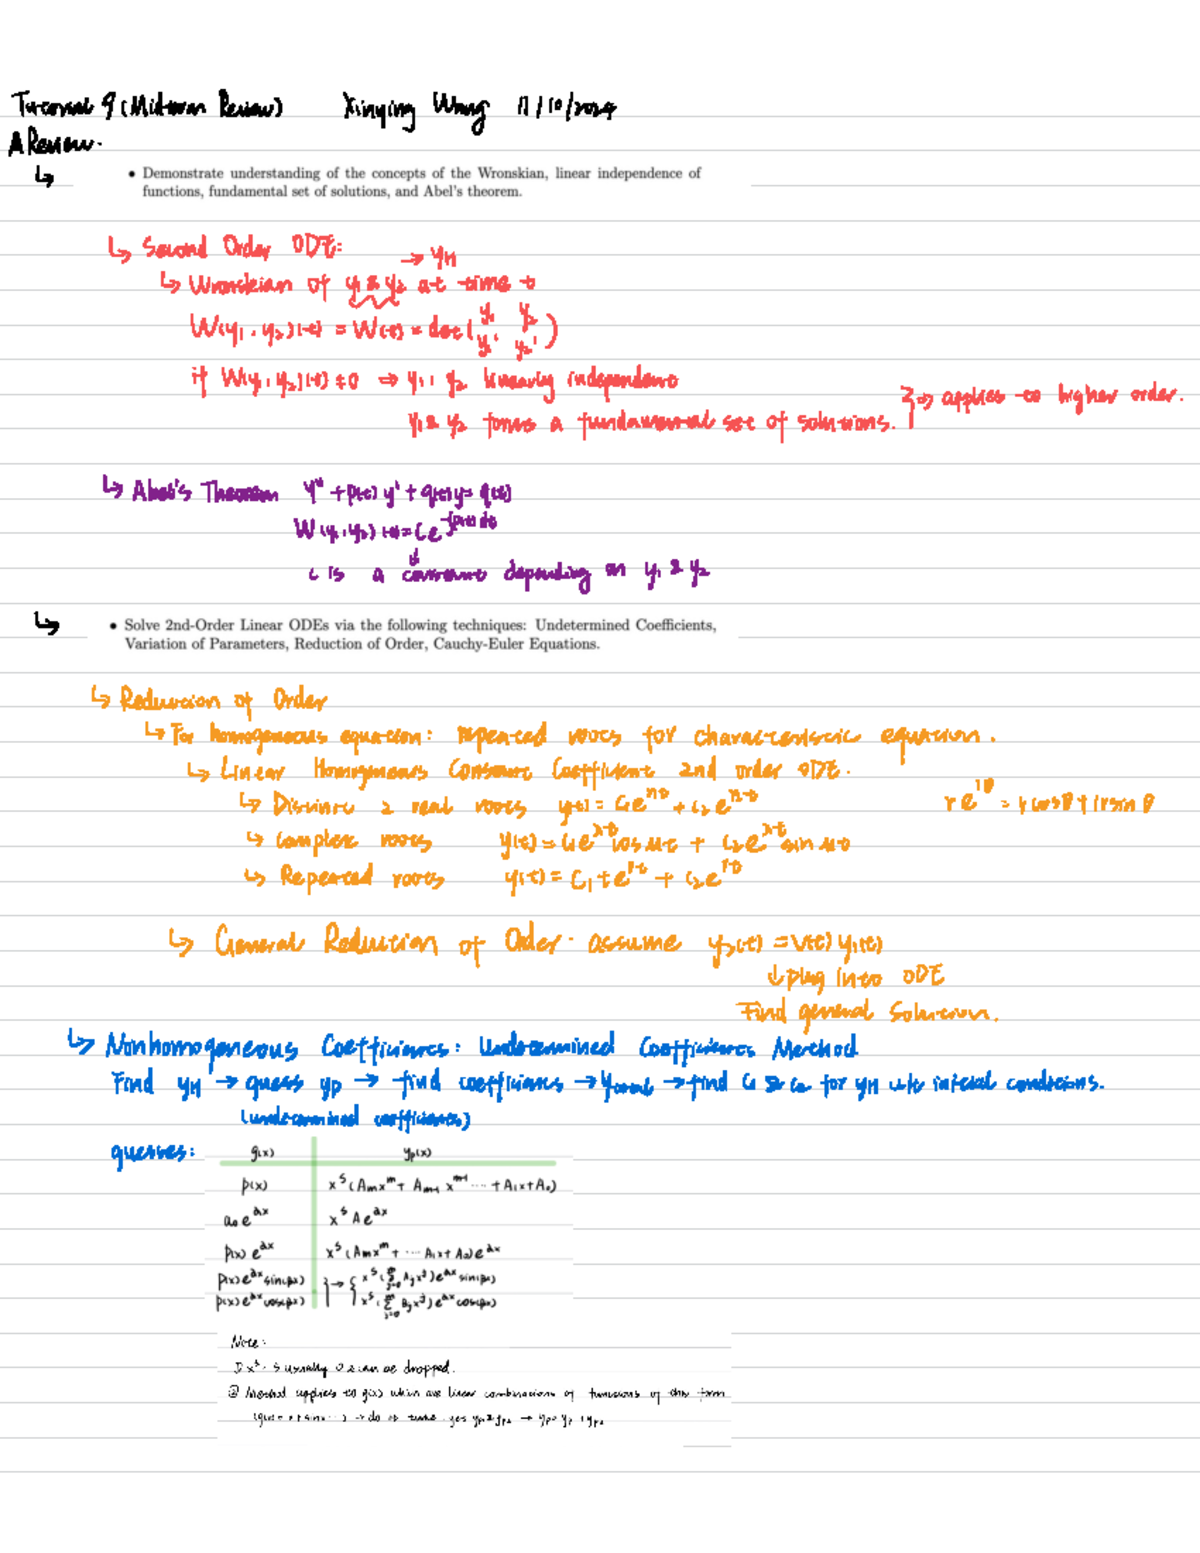 Tutorial 9 (Midterm Review) Xinying Wang 11/10/2024
A Review.
↳ • Demonstrate understanding of the concepts of the Wronskian, linear independence of
functions, fundamental set of solutions, and Abel's theorem.
↳ Second Order ODE:
→ yH
↳ Wronskian of y₁ & y₂ at time t
W(y₁, y₂)(t) = W(t) = det( y₁ y₂
y₁' y₂' )
if W(y₁, y₂)(t) ≠ 0 ⇒ y₁, y₂ linearly independent
y₁ & y₂ forms a fundamental set of solutions. } ⇒ applies to higher order.
↳ Abel's Theorem y'' + p(t) y' + q(t) y = g(t)
W(y₁, y₂)(t) = Ce^(-∫p(t) dt)
↓
C is a constant depending on y₁ & y₂
↳ • Solve 2nd-Order Linear ODEs via the following techniques: Undetermined Coefficients,
Variation of Parameters, Reduction of Order, Cauchy-Euler Equations.
↳ Reduction of Order
↳ For homogeneous equation: repeated roots for characteristic equation.
↳ Linear Homogenous Constant Coefficient 2nd order ODE.
↳ Distinct 2 real roots y(t) = C₁e^(r₁t) + C₂e^(r₂t) re^(iθ) = r cosθ + i r sin θ
↳ Complex roots y(t) = C₁e^(λt) cos μt + C₂e^(λt) sin μt
↳ Repeated roots y(t) = C₁te^(rt) + C₂e^(rt)
↳ General Reduction of Order. assume y₂(t) = V(t) y₁(t)
↓ plug into ODE
Find general Solution.
↳ Nonhomogeneous Coefficients: Undetermined Coefficients Method
Find yH → guess yp → find coefficients → ytotal → find C₁ & C₂ for yH w/ initial conditions.
(undetermined coefficients)
guesses: g(x) yp(x)
p(x) x^s (Amx^m + Am-1 x^(m-1) ... + A₁x + A₀)
a₀e^(αx) x^s Ae^(αx)
p(x) e^(αx) x^s (Amx^m + ... A₁x + A₀) e^(αx)
p(x) e^(αx) sin(βx) } → { x^s (Σ Ajx^j) e^(αx) sin(βx)
p(x) e^(αx) cos(βx) x^s (Σ Bjx^j) e^(αx) cos(βx)
Note:
① x^s. s usually 0 & can be dropped.
② Method applies to g(x) which are linear combinations of functions of this form